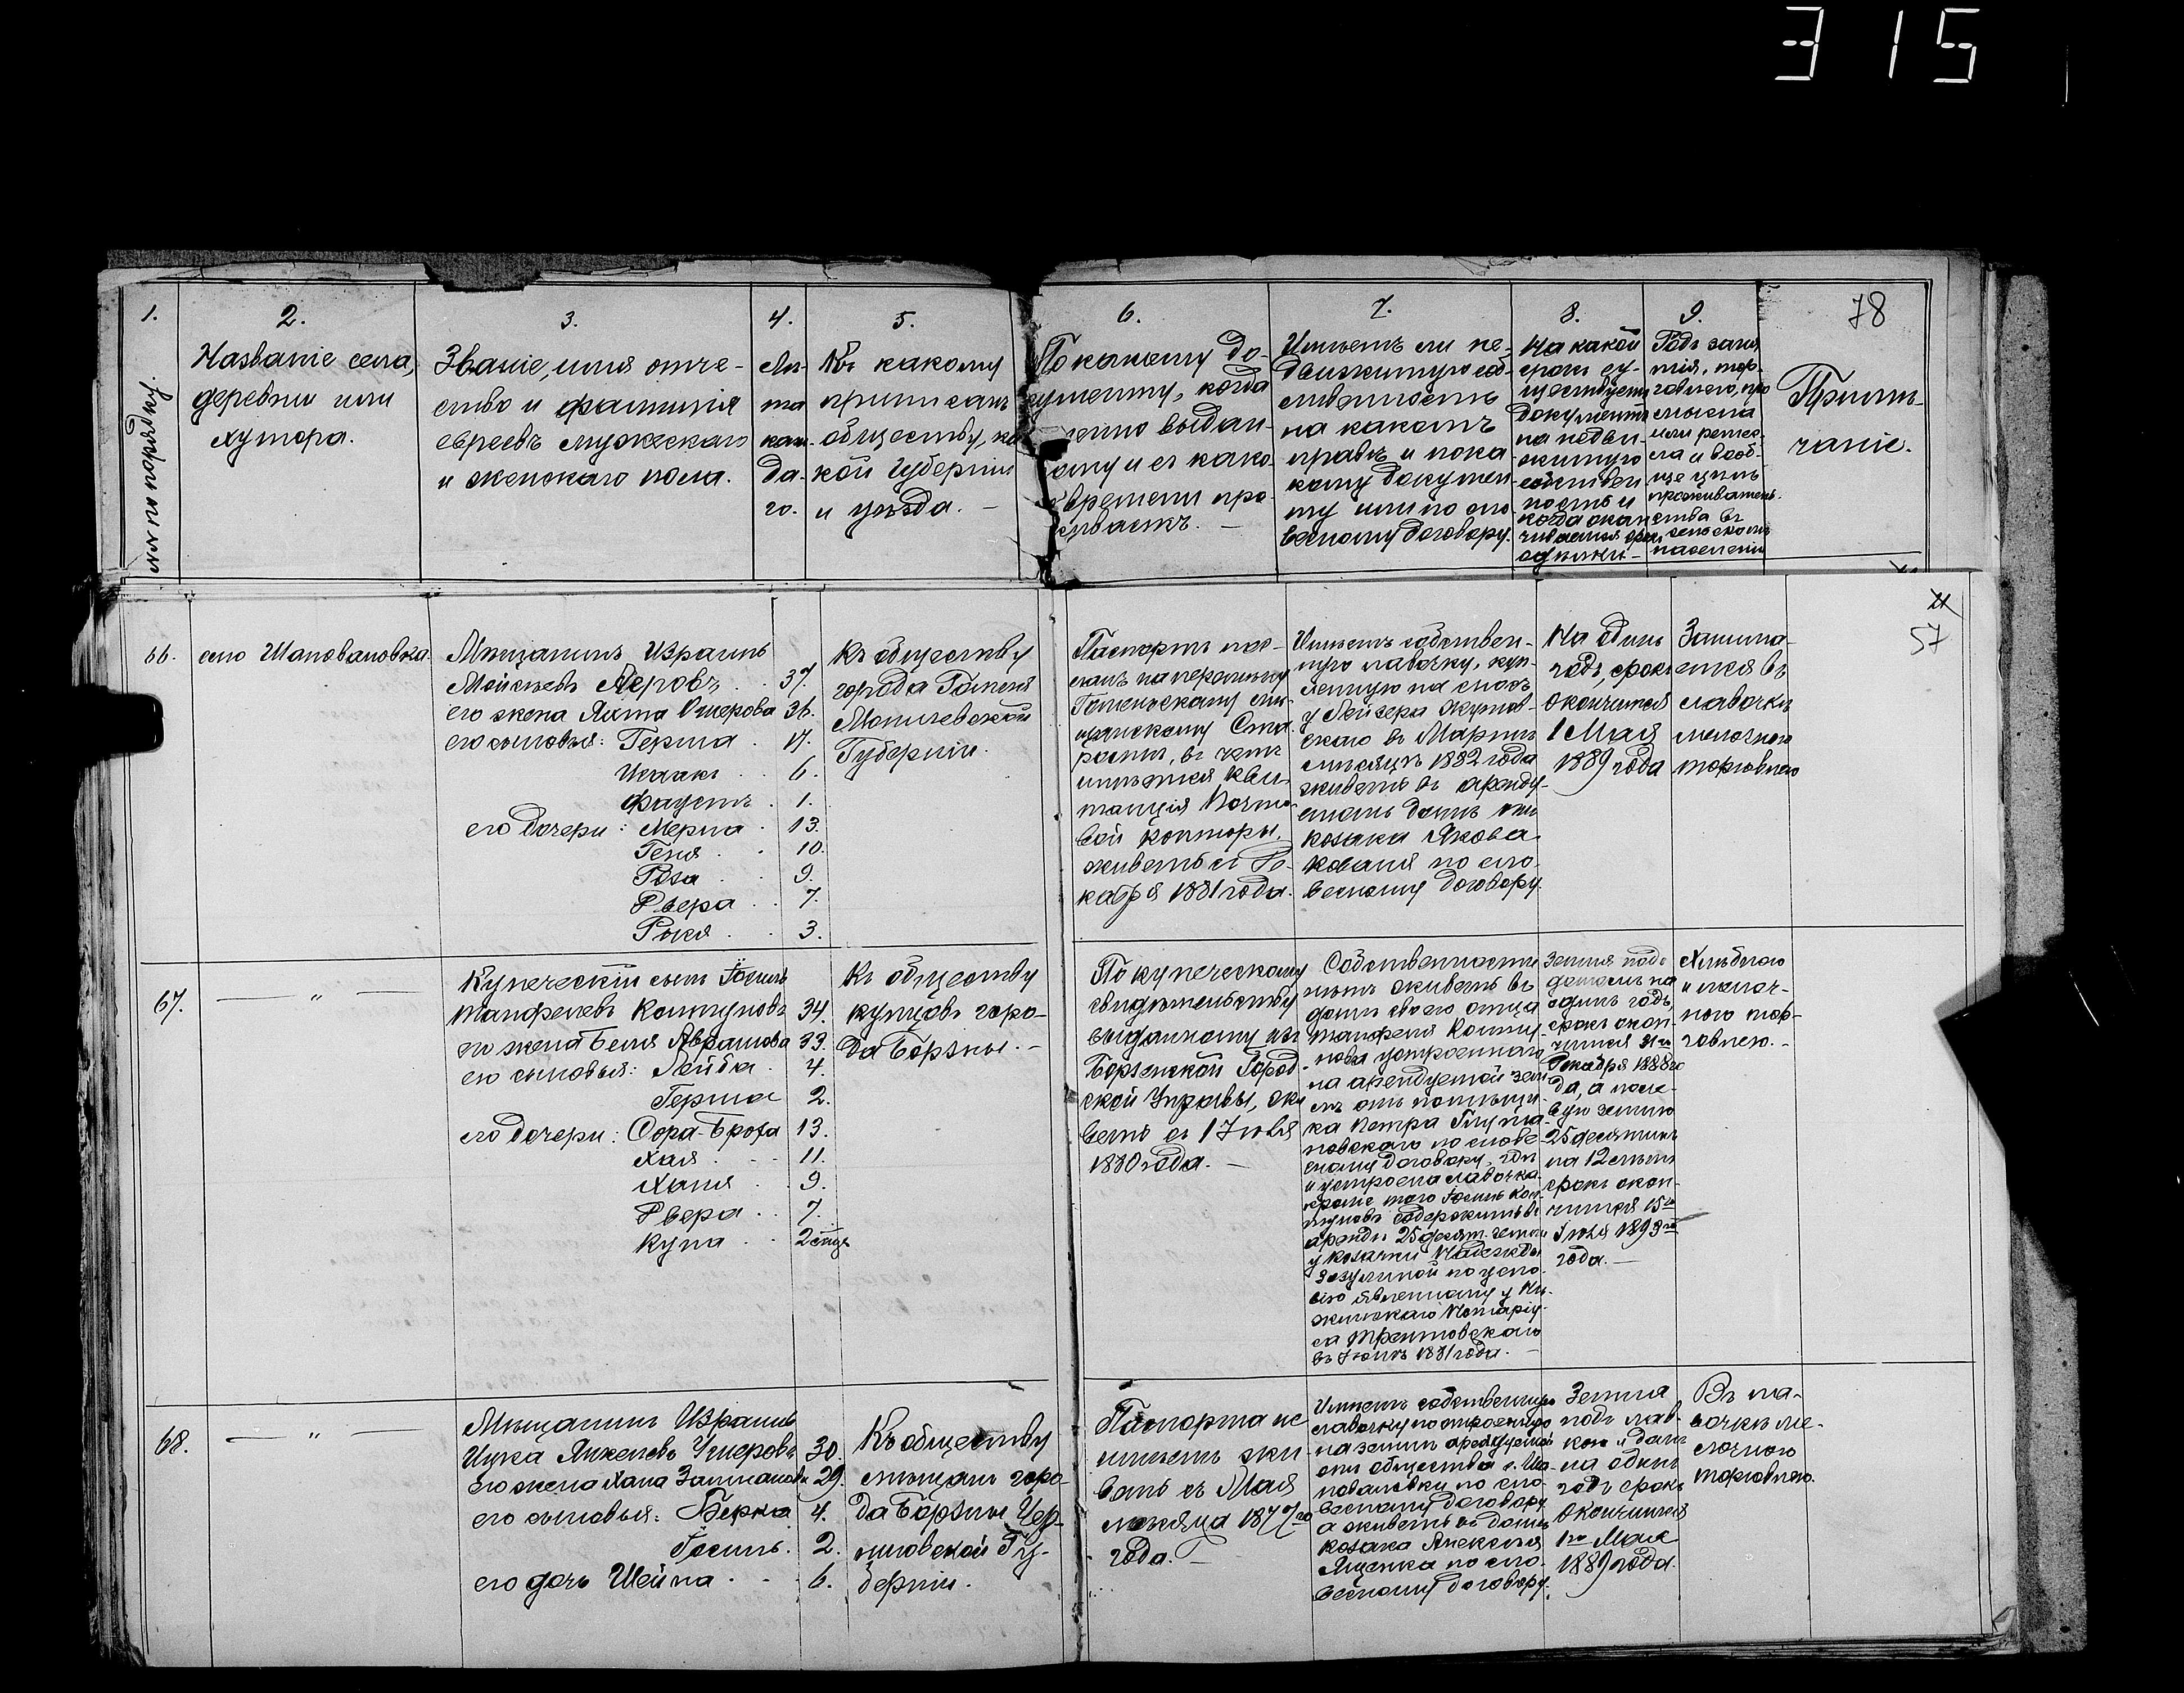 315
78
1.
№№ по порядку.
2.
Названіе села,
деревни или
хутора.
3.
Званіе, имя отче-
ство и фамилія
евреевъ мужескаго
и женскаго пола.
4.
Лѣ-
та
каж-
да-
го.
5.
Къ какому
приписанъ
обществу, ка
кой губерніи
и уѣзда. —
6.
По какому до-
кументу, когда
выдан-
ому и съ како-
времени про-
живаетъ. —
7.
Имѣетъ ли не-
движимую соб-
ственность
на какомъ
правѣ и по ка
кому докумен
ту или по сло
весному договору.
8.
На какой
срокъ су-
ществуетъ
документъ
на недви-
жимую
собствен
ность и
когда окан
чивается срокъ
9.
Родъ заня
тія, тор-
говлею, про
мысла
или ремес-
ла и вооб-
ще цѣль
проживатель-
ства въ
сельскомъ
населеніи
Примѣ-
чаніе.
21
57
66.
село Шаповаловка.
Мѣщанинъ Израиль
Мойсеевъ Леровъ . . 37.
его жена Яхма Ошерова 36.
его сыновья: Герша . 17.
Исаакъ . . 6.
Фаусмъ . 1.
его дочери: Мерша . 13.
Геня . . 10.
Роза . . 9.
Двера . . 7.
Рыся . . 3.
Къ обществу
города Гомеля
Могилевской
Губерніи.
Паспортъ пос-
ланъ на перемѣну
Гомельскому мѣ-
щанскому Ста-
ростѣ, въ чемъ
имѣется кви-
танція Почто-
вой конторы,
живетъ съ Де-
кабря 1881 года.
Имѣетъ собствен-
ную лавочку, куп-
ленную на сносъ
у Лейзера Якумов-
скаго въ Мартѣ
мѣсяцѣ 1882 года
живетъ въ арендо-
емомъ домѣ отъ
козака Якова
Коваля по сло-
весному договору.
На одинъ
годъ, срокъ
окончится
1 Мая
1889 года
Занима-
ется въ
лавочкѣ
мелочною
торговлею
67.
— " —
Купеческій сынъ Іосиль
Танфелевъ Колтуновъ 34.
его жена Беля Абрамова 33.
его сыновья: Лейба . 4.
Герша 2.
его дочери: Сора-Броха 13.
Хая . . . 11.
Ханя . . 9.
Двера . . 7.
Куна . . 2 мѣся
Къ обществу
купцовъ горо-
да Борзны. —
По купеческому
свидѣтельству
выданному изъ
Борзенской Город
ской Управы, жи
ветъ съ 1 Іюля
1880 года. —
Собственности
нѣтъ живетъ въ
домѣ своего отца
Танфеля Колту-
нова устроеннаго
на арендуемой зем
лѣ отъ помѣщи-
ка Петра
по слове-
сному договору, гдѣ
и устроена лавочка.
кромѣ того Іосиль Кол-
туновъ содержитъ въ
арендѣ 25 десят. земли
у козачки Надежды
Зазулиной по усло-
вію явленному у Нѣ-
жинскаго Нотаріу-
са
въ Іюлѣ 1881 года. —
Земля подъ
домомъ на
одинъ годъ,
срокъ окон-
чится 31го
Декабря 1888 го
да, а поле-
вую землю
25 десятинъ
на 12 лѣтъ
срокъ окон-
чится 15го
Іюля 1893го
года. —
Хлѣбною
и мелоч-
ною тор-
говлею. —
68.
— " —
Мѣщанинъ Израиль
Ицка Янкелевъ Ушеровъ 30.
его жена Хана Залманова 29.
его сыновья: Берко 4.
Іосиль. 2.
его дочь Шейна . . . 6.
Къ обществу
мѣщанъ горо-
да Борзны Чер-
ниговской Гу-
берніи.
Паспорта не
имѣетъ жи-
ветъ съ Мая
мѣсяца 1877го
года. —
Имѣетъ собственную
лавочку построенную
на землѣ арендуемой
отъ общества с. Ша-
поваловки по сло-
весному договору
а живетъ въ домѣ
козака Алексея
Яценка по сло-
весному договору.
Земля
подъ лав-
кою и домъ
на одинъ
годъ срокъ
окончится
1го Мая
1889 года
Въ ла-
вочкѣ ме-
лочною
торговлею.